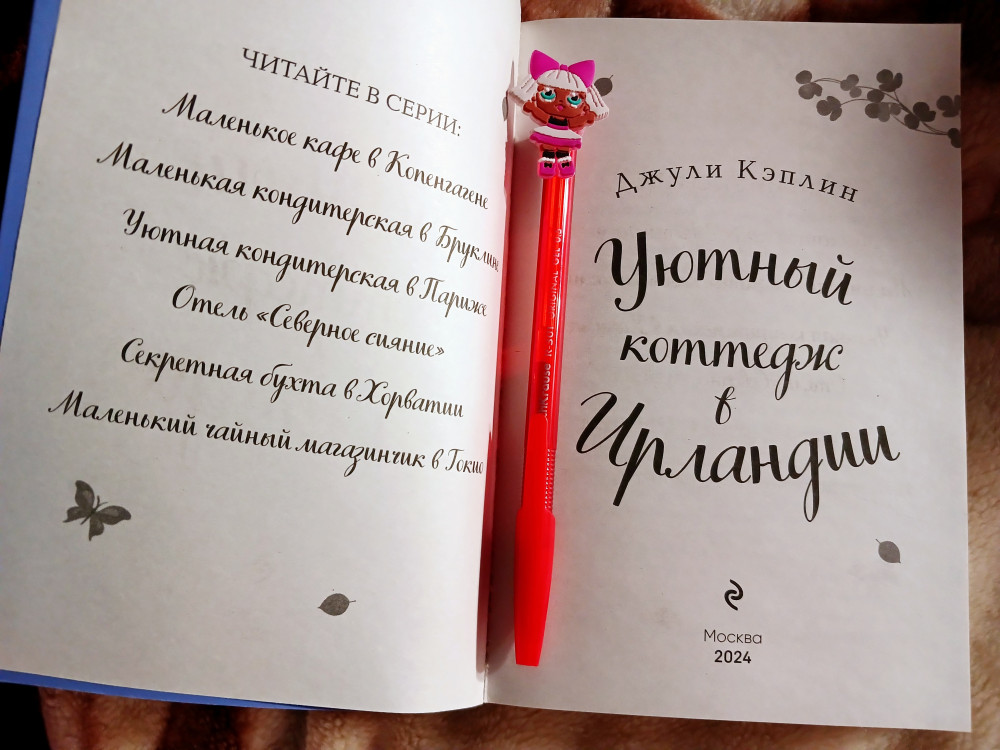 ЧИТАЙТЕ В СЕРИИ:
Маленькое кафе в Копенгагене
Маленькая кондитерская в Бруклине
Уютная кондитерская в Париже
Отель «Северное сияние»
Секретная бухта в Хорватии
Маленький чайный магазинчик в Токио
Джули Кэплин
Уютный
коттедж
в
Ирландии
Москва
2024
ORIGINAL